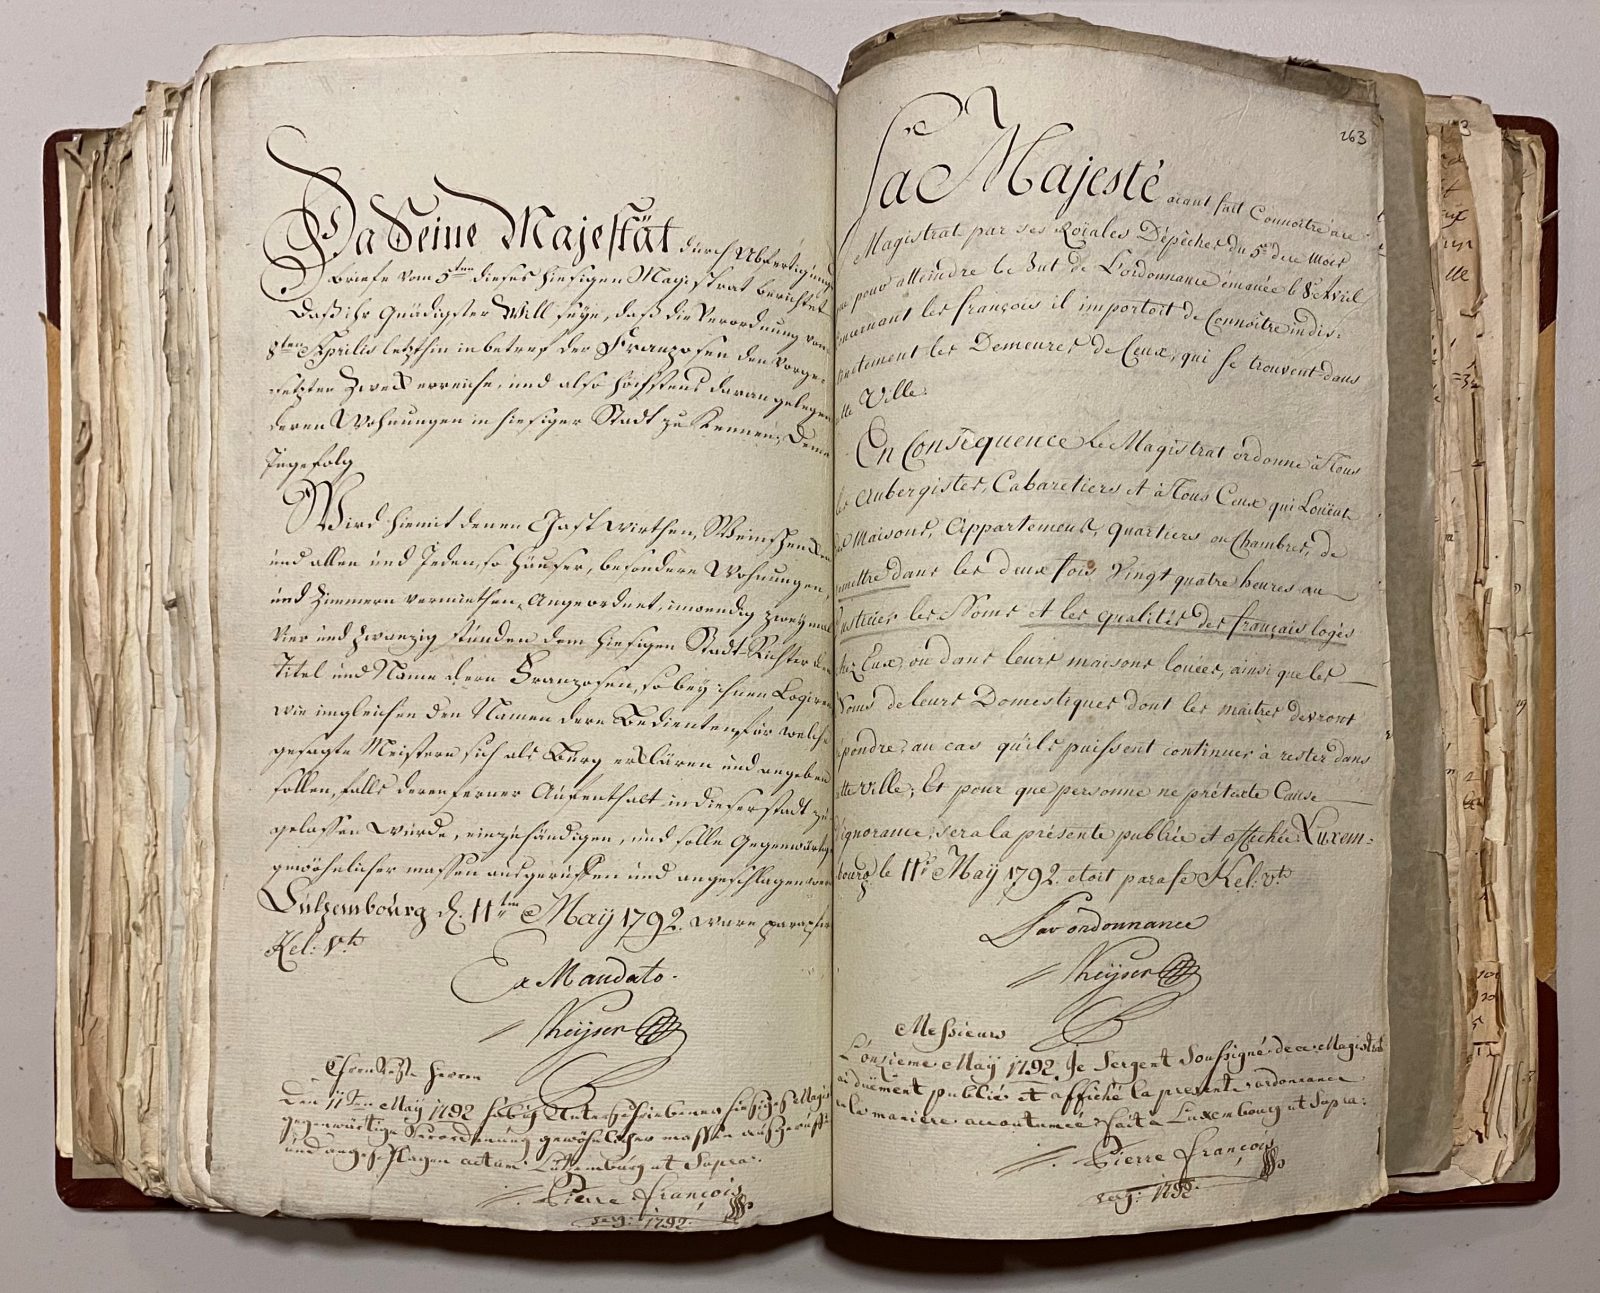 Da Seine Majestät durch Abfertigungs
Briefe vom 5ten dieses hiesigen Magistrat berichtet
daß ihr Gnädigster Will seye, daß die Verordnung vom
8ten Aprilis letzthin in betref der Franzosen den vorge-
setzten Zweck erreiche, und also höchstens daran gelegen
deren Wohnungen in hiesiger Stadt zu Kennen; Deme
Zugefolg
Wird hiemit denen Gastwirthen, Weinschencken
und allen und Jeden, so häuser, besondere Wohnungen,
und Zimmern vermiethen, Angeordnet, inwendig zweymal
vier und zwanzig stunden dem hiesigen Stadt-Richter den
Titel und Name deren Franzosen, so bey ihnen Logiren
wie imgleichen den Namen deren Bedienten, für welche
gesagte Meistern sich als Bürg erklären und angeben
sollen, falls deren ferner Aufenthalt in dieser stadt zu
gelassen würde, einzuhändigen, und solle Gegenwärtige
gewöhnlicher massen ausgeruffen und angeschlagen
Lützembourg d. 11ten May 1792. ware paraphirt
Kel: vt
Ex Mandato.
Ehrenveste Herren
Den 11ten May 1792 hab ich Unterschriebener hiesiges Magist
gegenwärtige Verordnung gewöhnlicher massen ausgeruff
und angeschlagen actum Lutzembourg ut Supra.
Pierre François
serg: 1792.
263
Sa Majesté aiant fait Connoitre à ce
Magistrat par ses Roïales Dépêches du 5e de ce Mois
que pour atteindre le But de L'ordonnance émanée le 8e Avril
concernant les françois il importoit de Connoitre indis-
tinctement les Demeures de Ceux, qui se trouvent dans
cette Ville.
En Conséquence Le Magistrat ordonne à Tous
les Aubergistes, Cabaretiers et à Tous Ceux qui Louent
des Maisons, Appartemens, quartiers ou Chambres, de
remettre dans les deux fois Vingt quatre heures au
Justicier les Noms et les qualités des français logés
chez Eux, ou dans leurs maisons louées, ainsi que les
Noms de leurs Domestiques dont les maitres devront
répondre, au cas qu'ils puissent continuer à rester dans
cette ville; Et pour que personne ne prétexte Cause
d'ignorance, sera la présente publiée et affichée. Luxem-
bourg le 11e May 1792. etoit parafé Kel: vt
Par ordonnance
Messieurs
L'onsieme May 1792. Je Sergent Soussigné de ce Magistrat
ai duëment publiés et affiché la presente ordonnance
en la maniere accoutumée fait à Luxembourg ut Supra:
Pierre François
serg: 1792